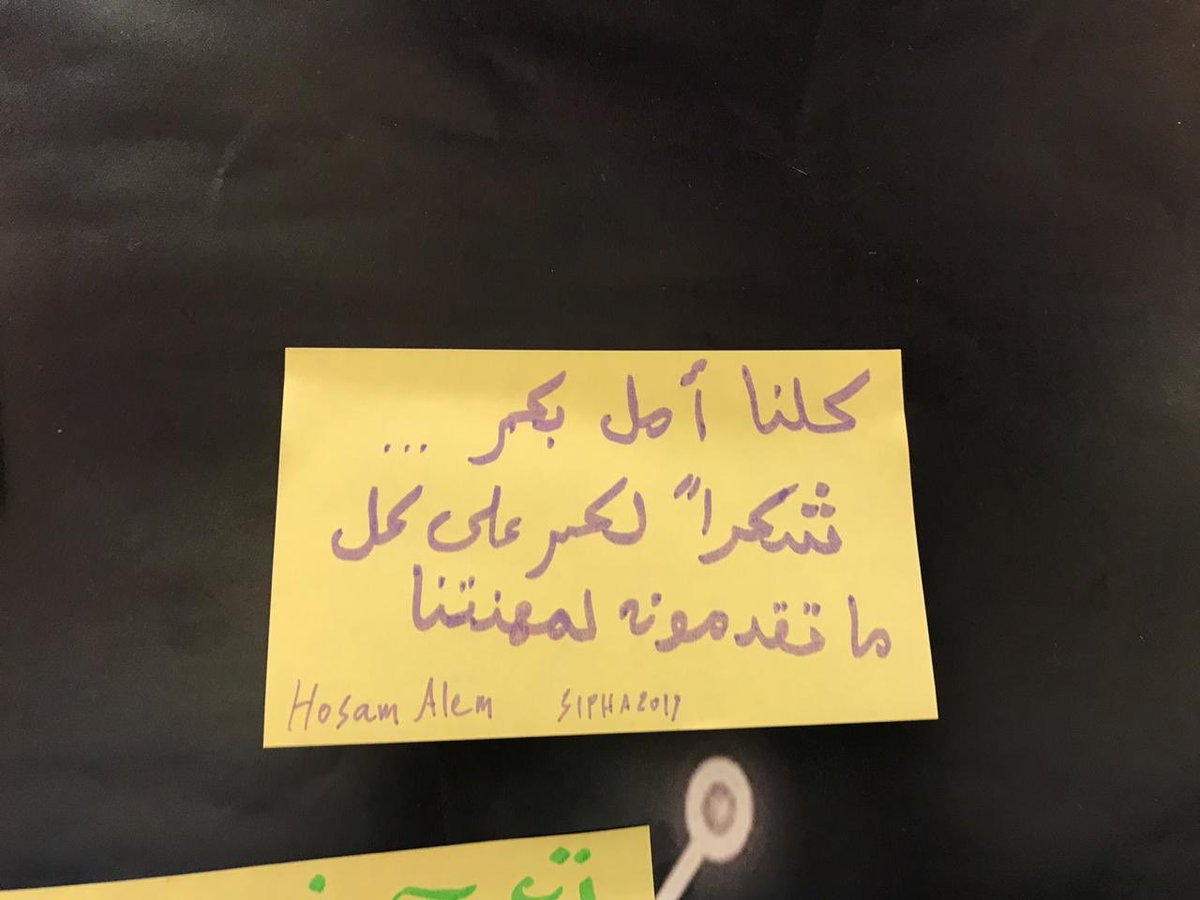 كلنا أمل بكم ...
شكراً لكم على كل
ما تقدمونه لمهنتنا
Hosam Alem SIPHA2017